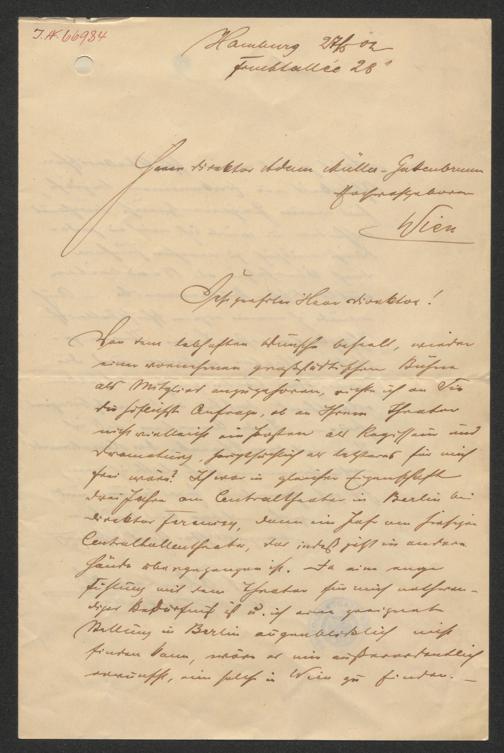 I.N. 66984
Hamburg 27/5 02
Fruchtallée 28 I
Herrn Direktor Adam Müller-Gutenbrunn
Hochwohlgeboren
Wien
Sehr geehrter Herr Direktor!
Von dem lebhaften Wunsche beseelt, wieder
einer vornehmen großstädtischen Bühne
als Mitglied anzugehören, richte ich an Sie
die höflichste Anfrage, ob an Ihrem Theater
nicht vielleicht ein Posten als Regisseur und
Dramaturg, hauptsächlich als letzterer für mich
frei wäre? Ich war in gleicher Eigenschaft
drei Jahre am Centraltheater in Berlin bei
Direktor Ferenczy, dann ein Jahr am hiesigen
Centralhallentheater, das indeß jetzt in andere
Hände übergegangen ist. Da eine enge
Fühlung mit dem Theater für mich nothwen-
diges Bedürfniß ist u. ich eine geeignete
Stellung in Berlin augenblicklich nicht
finden kann, wäre es mir außerordentlich
erwünscht, eine solche in Wien zu finden. —